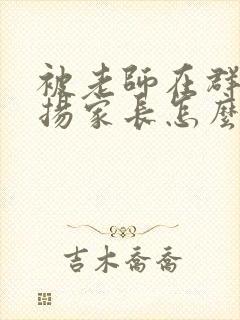 被老師在群
揚家長怎麼
吉木喬喬